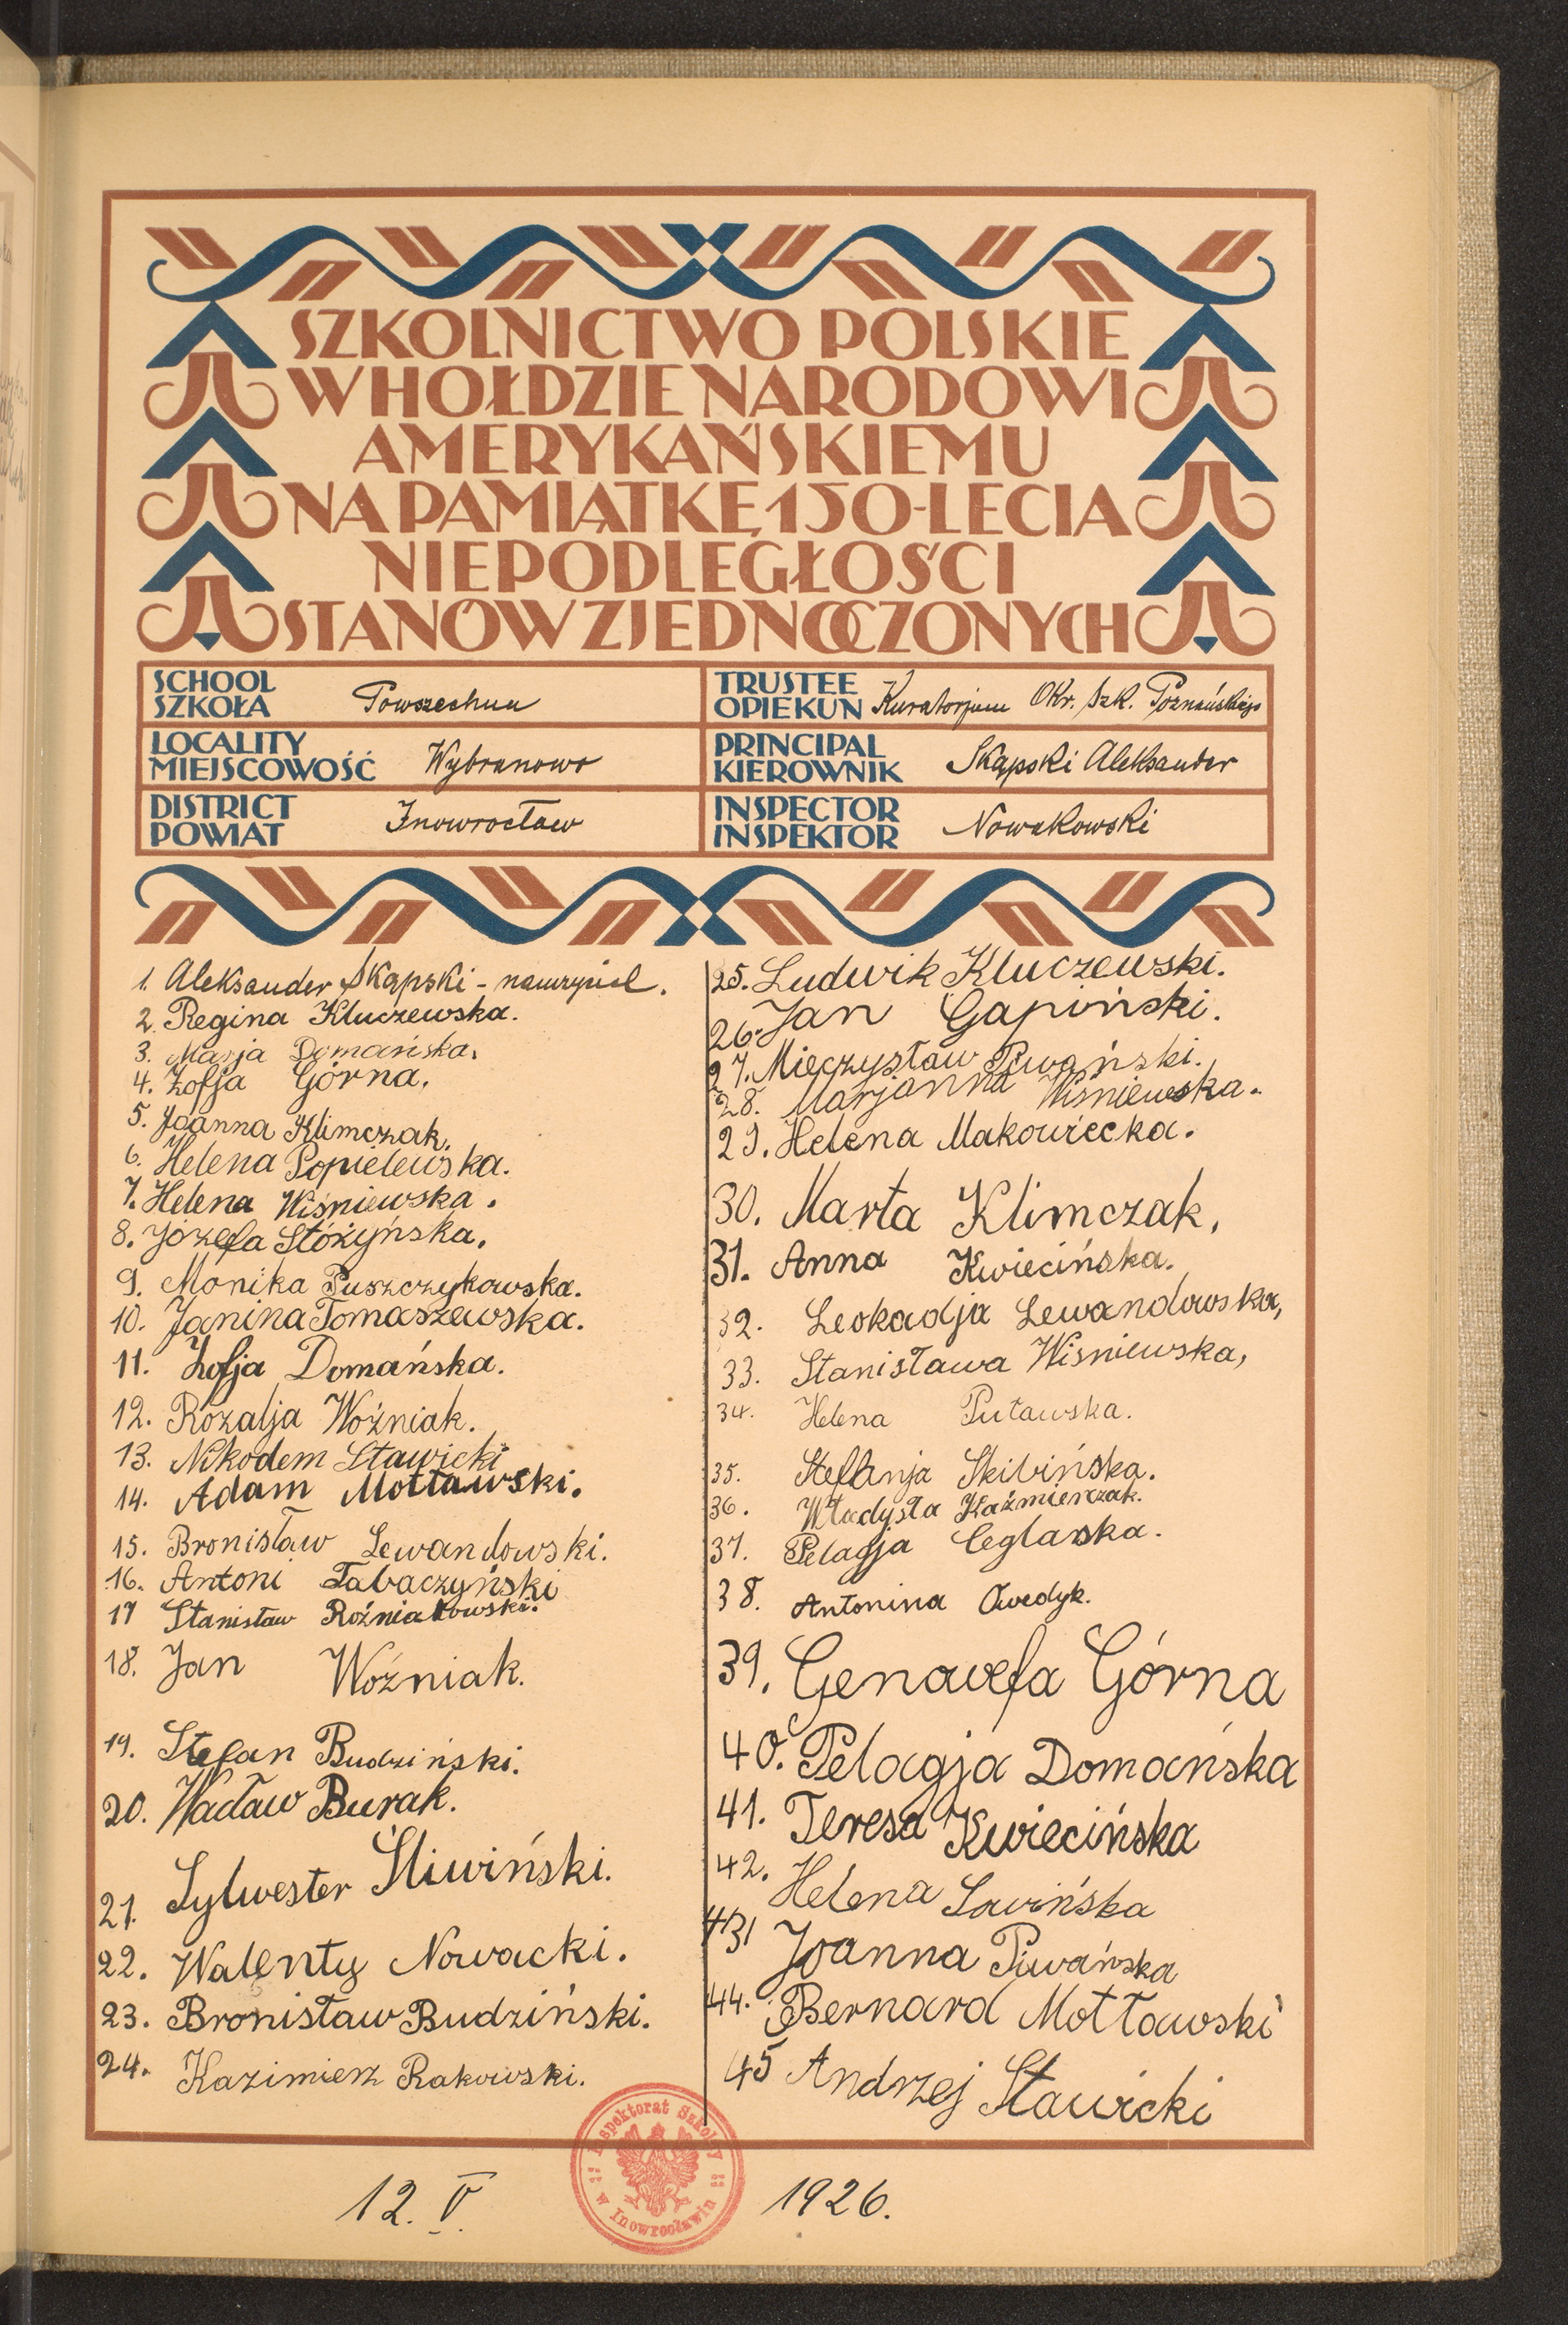 SZKOLNICTWO POLSKIE
W HOŁDZIE NARODOWI
AMERYKAŃSKIEMU
NA PAMIĄTKĘ 150-LECIA
NIEPODLEGŁOŚCI
STANÓW ZJEDNOCZONYCH
SCHOOL
SZKOŁA Powszechna
TRUSTEE
OPIEKUN Kuratorjum Okr. Szk. Poznańskiego
LOCALITY
MIEJSCOWOŚĆ Wybranowo
PRINCIPAL
KIEROWNIK Skąpski Aleksander
DISTRICT
POWIAT Inowrocław
INSPECTOR
INSPEKTOR Nowakowski
1. Aleksander Skąpski - nauczyciel.
2. Regina Kluczewska.
3. Marja Domańska.
4. Zofja Górna.
5. Joanna Klimczak.
6. Helena Popielewska.
7. Helena Wiśniewska.
8. Józefa Stóżyńska.
9. Monika Puszczykowska.
10. Janina Tomaszewska.
11. Zofja Domańska.
12. Rozalja Woźniak.
13. Nikodem Stawicki
14. Adam Mottawski.
15. Bronisław Lewandowski.
16. Antoni Tabaczyński
17 Stanisław Roźniakowski.
18. Jan Woźniak.
19. Stefan Budziński.
20. Wacław Burak.
21. Sylwester Śliwiński.
22. Walenty Nowacki.
23. Bronisław Budziński.
24. Kazimierz Rakowski.
25. Ludwik Kluczewski.
26. Jan Gapiński.
27. Mieczysław Piwański.
28. Marjanna Wiśniewska.
29. Helena Makowiecka.
30. Marta Klimczak,
31. Anna Kwiecińska.
32. Leokadja Lewandowska,
33. Stanisława Wiśniewska,
34. Helena Putawska.
35. Stefanja Skibińska.
36. Władysła Kaźmierczak.
37. Pelagja Ceglarska.
38. Antonina
39. Genowefa Górna
40. Pelagja Domańska
41. Teresa Kwiecińska
42. Helena Sawińska
43 Joanna Piwańska
44. Bernard Mottawski
45 Andrzej Stawicki
Inspektorat Szkolny
w Inowrocławiu
12. V. 1926.